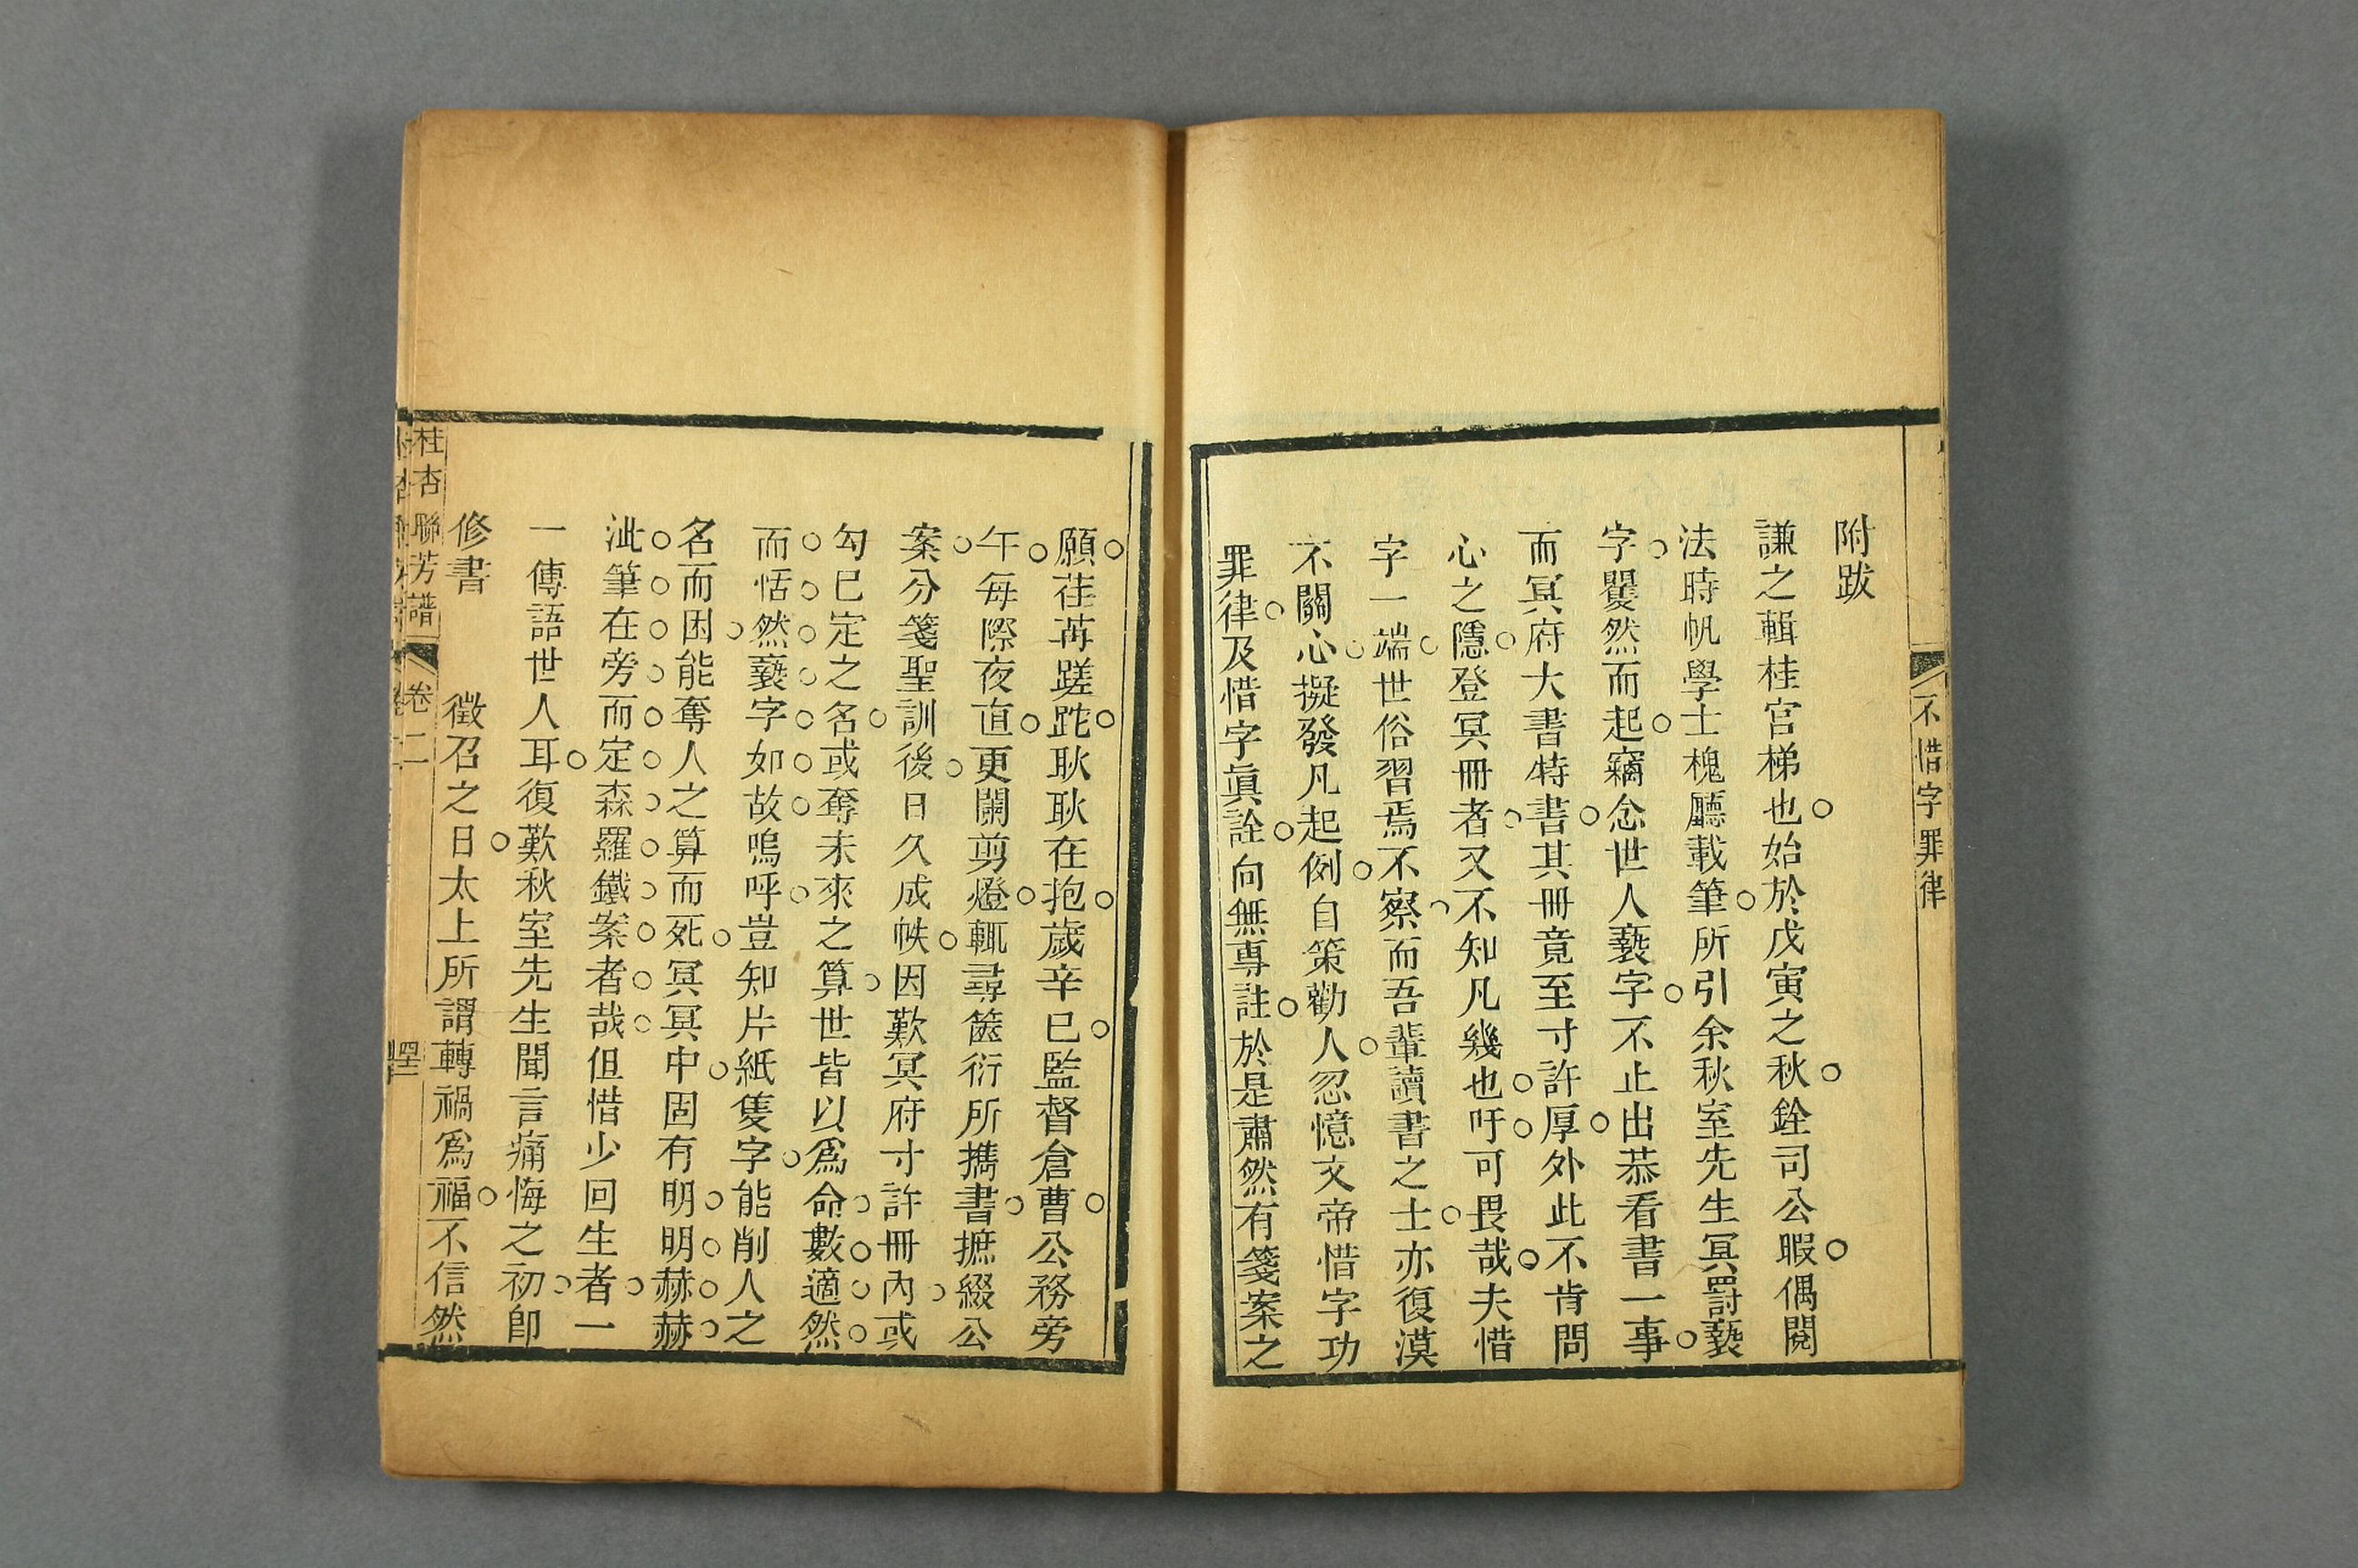 不惜字罪律
附跋
謙之輯桂宮梯也始於戊寅之秋銓司公暇偶閱
法時帆學士槐廳載筆所引余秋室先生冥罰褻
字矍然而起竊念世人褻字不止出恭看書一事
而冥府大書特書其冊竟至寸許厚外此不肯問
心之隱登冥冊者又不知凡幾也吁可畏哉夫惜
字一端世俗習焉不察而吾輩讀書之士亦復漠
不關心擬發凡起例自策勸人忽憶文帝惜字功
罪律及惜字眞詮向無專註於是肅然有箋案之
願荏苒蹉跎耿耿在抱歲辛巳監督倉曹公務旁
午每際夜直更闌剪燈輒尋篋衍所攜書摭綴公
案分箋聖訓後日久成帙因歎冥府寸許冊內或
勾已定之名或奪未來之算世皆以爲命數適然
而恬然褻字如故嗚呼豈知片紙隻字能削人之
名而困能奪人之算而死冥冥中固有明明赫赫
泚筆在旁而定森羅鐵案者哉但惜少回生者一
一傳語世人耳復歎秋室先生聞言痛悔之初卽
修書　徵召之日太上所謂轉禍爲福不信然
桂杏聯芳譜　卷二